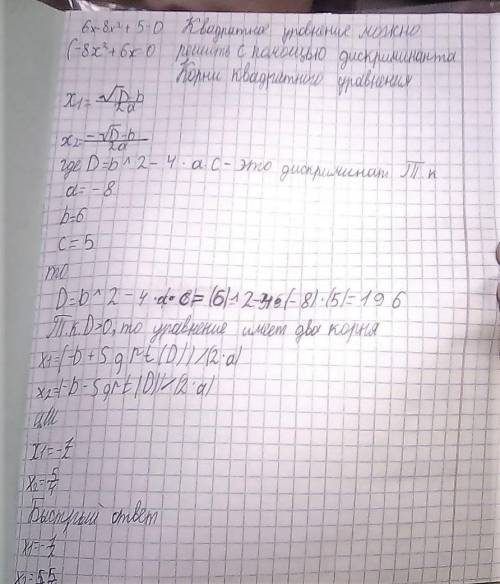 6x-8x²+5=0 Квадратное уровнение можно
(-8x²+6x=0 решить с помощью дискриминанта
Корни квадратного уравнения
x1=√D-b/2a
x2=-√D-b/2a
где D=b^2-4·a·c- это дискриминат Т.к
a=-8
b=6
c=5
то
D=b^2-4·a·c=(6)^2-4·(-8)·(5)=196
Т.к. D>0, то уравнение имеет два корня
x1=(-b+sqrt(D))/(2·a)
x2=(-b-sqrt(D))/(2·a)
или
x1=-1/2
x2=5/4
Быстрый ответ
x1=-1/2